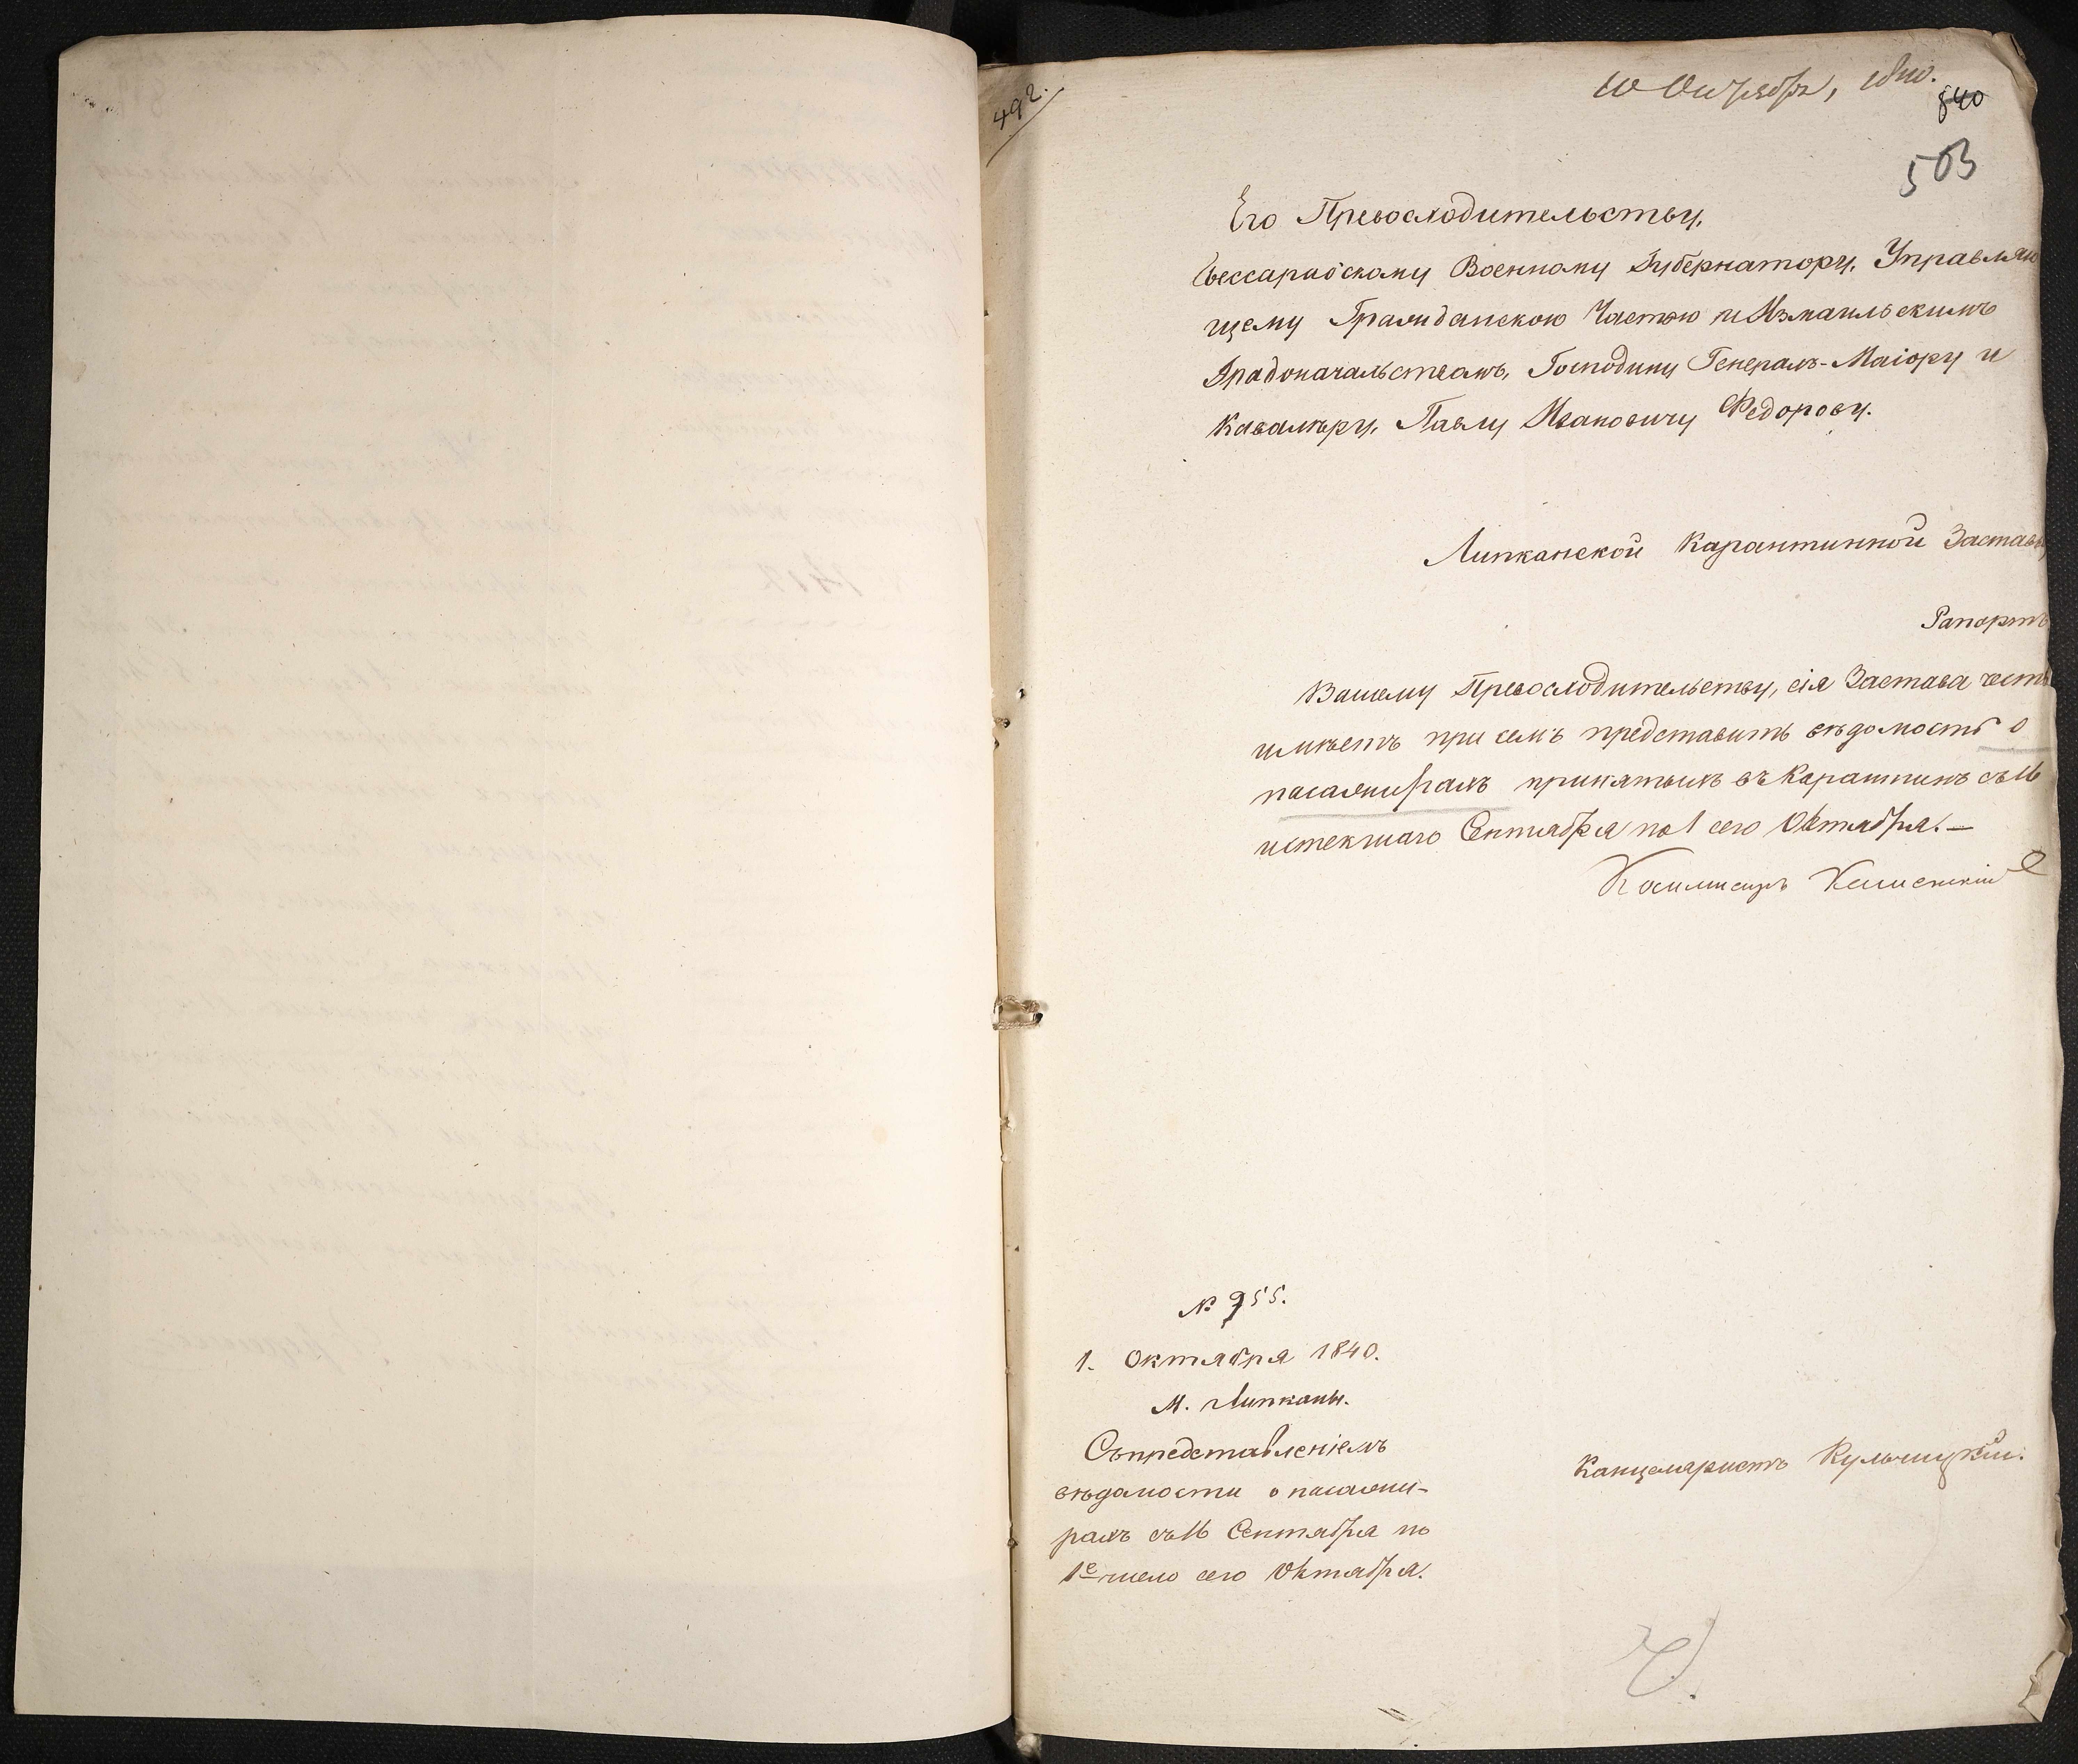 492.
10 Октября, 1840.
840
503
Его Превосходительству,
Бессарабскому Военному Губернатору, Управляю
щему Гражданскою Частью и Измаильскимъ
Градоначальствомъ, Господину Генералъ-Маіору и
Кавалеру, Павлу Ивановичу Федорову.
Липканской Карантинной Заставы
Рапортъ
Вашему Превосходительству, сія Застава честь
имѣетъ при семъ представить вѣдомость о
пасажирахъ принятыхъ въ Карантинъ съ 16
истекшаго Сентября по 1 сего Октября. —
Коммисаръ
№ 955.
1. Октября 1840.
М. Липканы.
Съ представленіемъ
вѣдомости о пасажи-
рахъ съ 16 Сентября по
1е число сего Октября.
Канцеляристъ Кульчицкій.